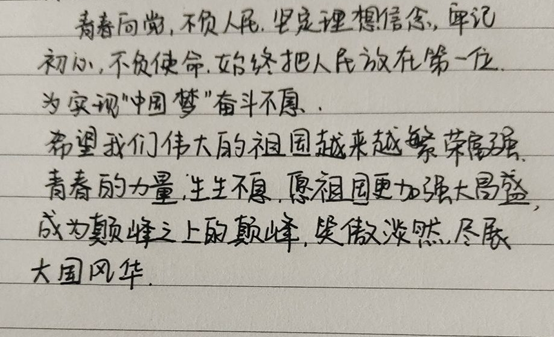 青春向党,不负人民.坚定理想信念,牢记
初心,不负使命.始终把人民放在第一位.
为实现"中国梦"奋斗不息..
希望我们伟大的祖国越来越繁荣富强.
青春的力量,生生不息.愿祖国更加强大昌盛,
成为颠峰之上的颠峰,笑傲淡然.尽展
大国风华.